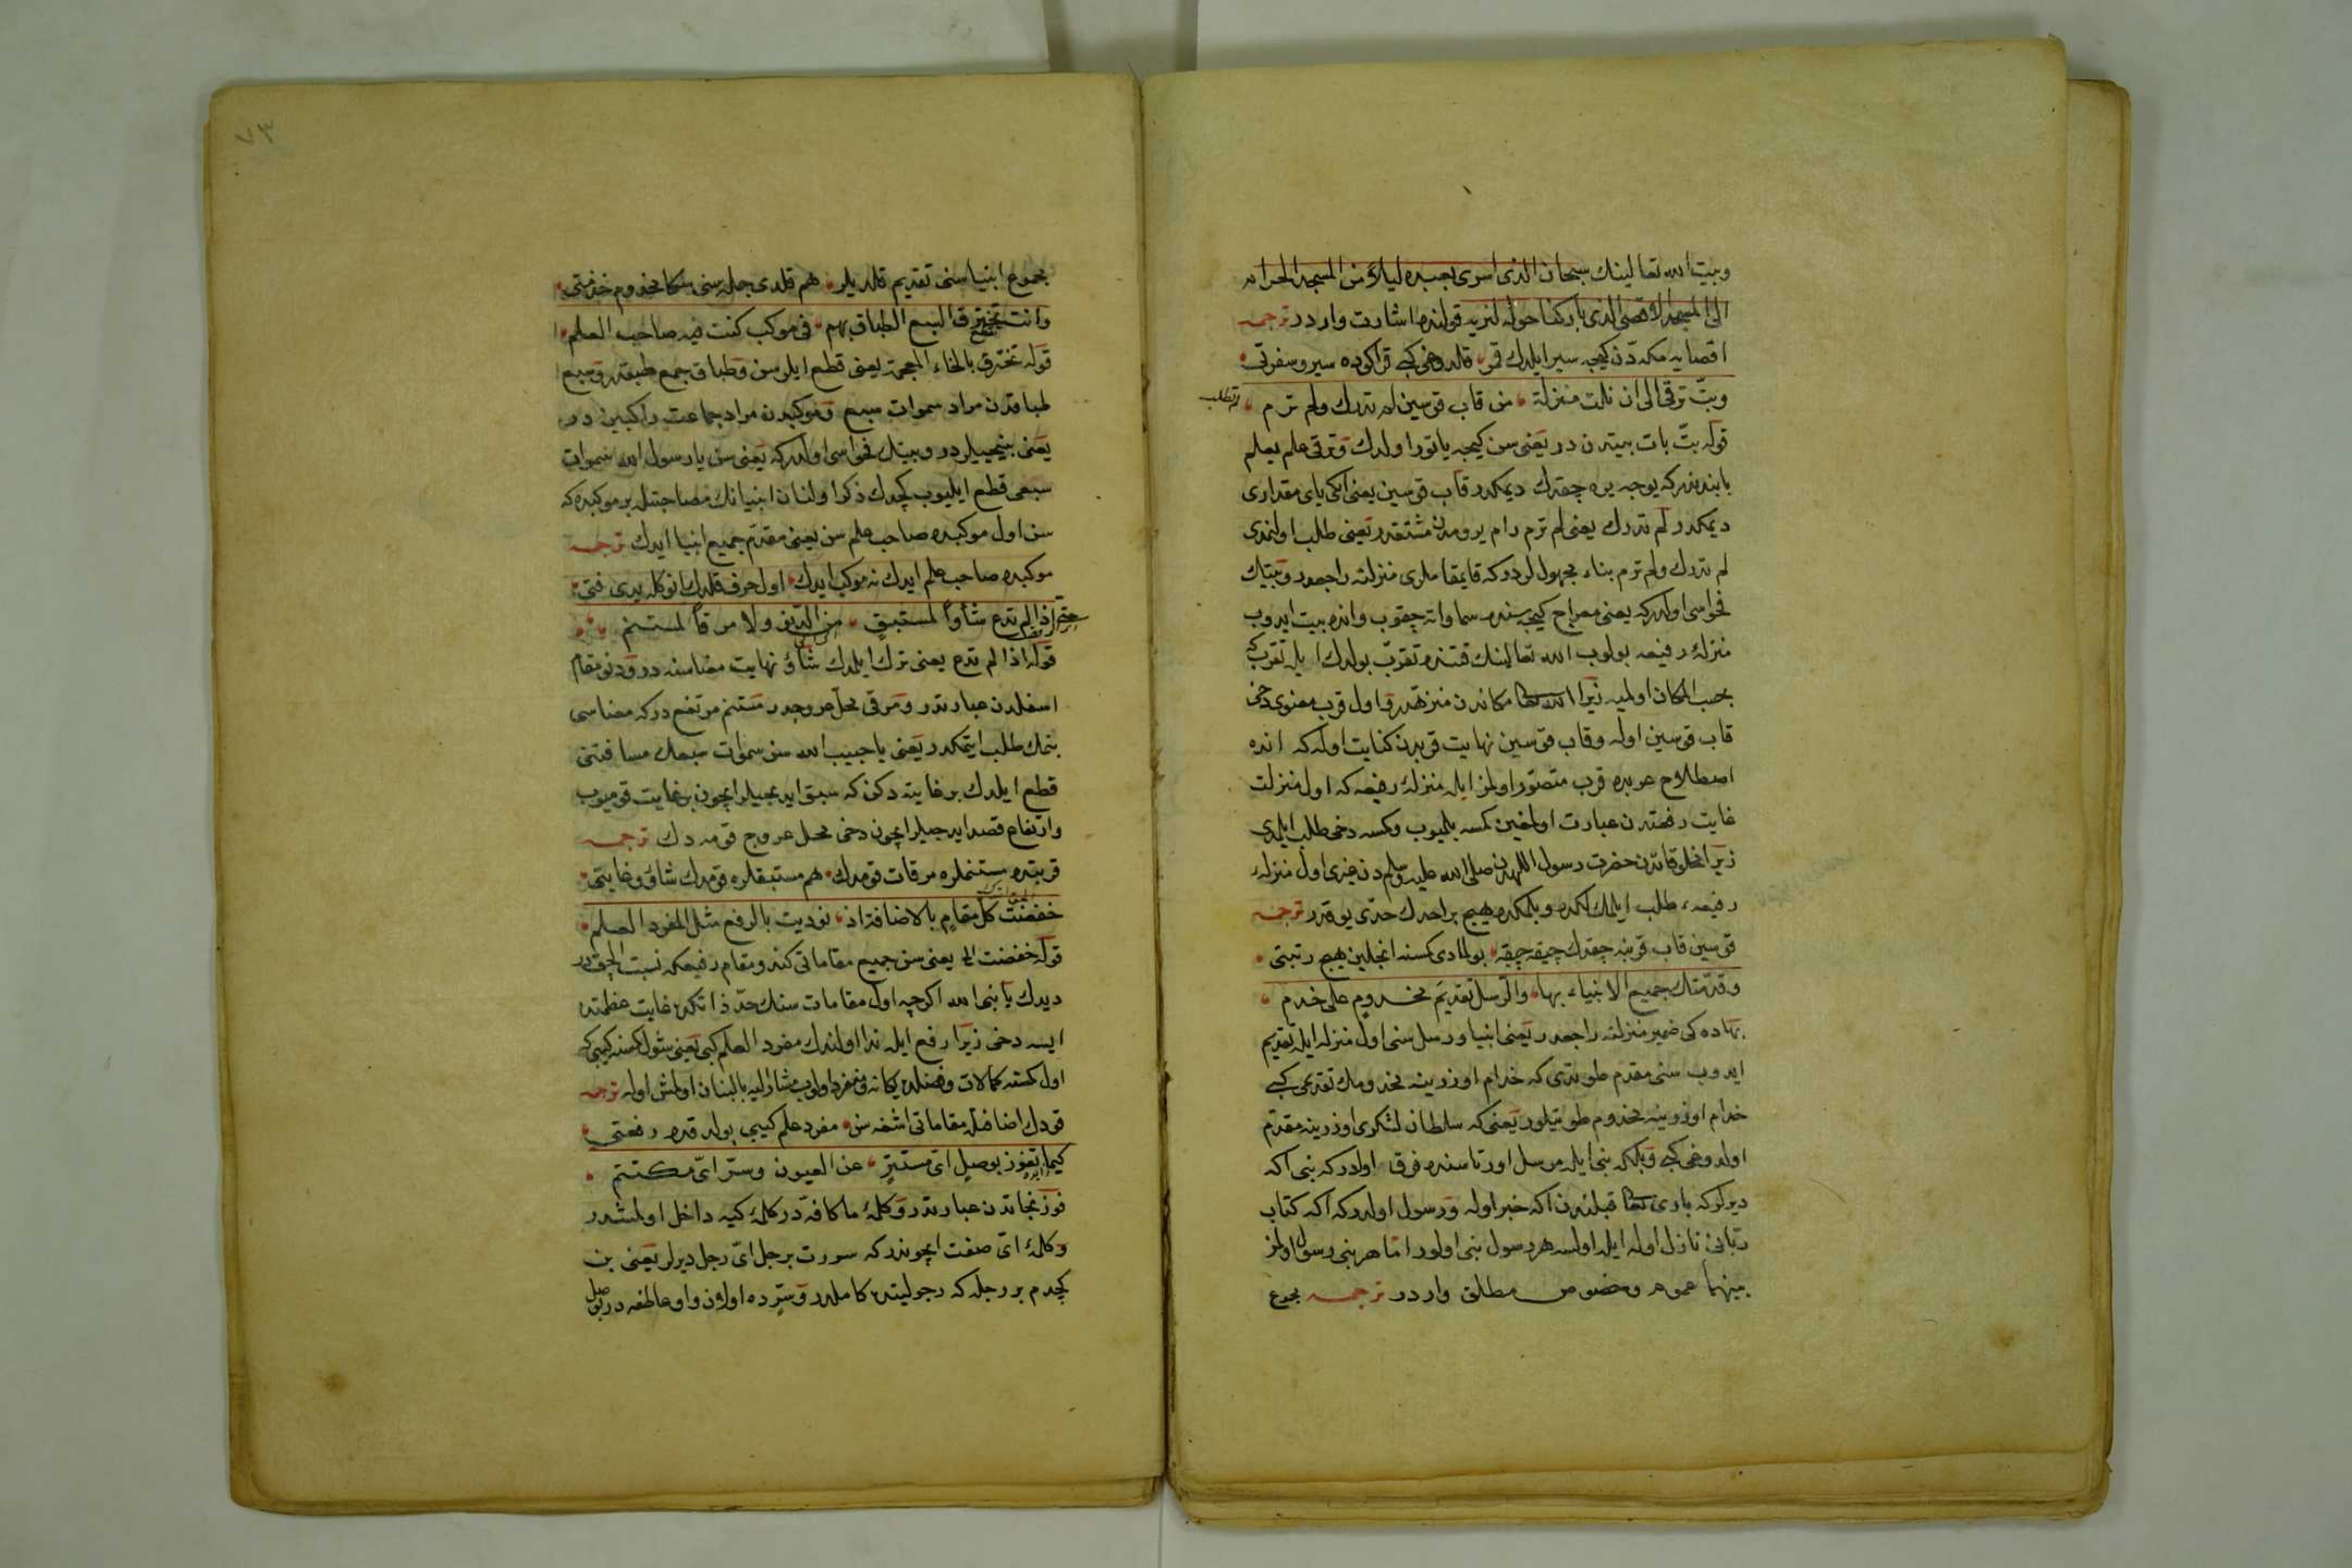 وبيت الله تعالينك سبحان الذى اسرى بعبده ليلاً من المسجد الحرام
الى المسجد الاقصى الذى باركنا حوله لنريه قولنده اشارت واردر ترجمه
اقصايه مكه دن كيجه سير ايلدك قمر قلدوغى كبى قراكوده سير وسفرتى
وبتّ ترقى الى ان نلت منزلة من قاب قوسين لم تدرك ولم ترم
لم تطلب
قوله بتّ بات يبيتدن در يعنى سن كيجه ياتور اولدك وترقى علم يعلم
بابندندركه يوجه يره چقدك ديمكدر قاب قوسين يعنى ايكى ياى مقدارى
ديمكدر لم تدرك يعنى لم ترم رام يرومدن مشتقدر يعنى طلب اولنمدى
لم تدرك ولم ترم بناء مجهول لردركه قايمقاملرى منزلته راجعدر وبيتك
فحواسى اولدركه يعنى معراج كيجه سنده سماواته چقوب وانده بيت ايدوب
منزلۀ رفيعه بولوب الله تعالينك قتنده تقرّب بولدك ايله تقرب كه
بحسب المكان اولميه زيرا الله تعالى مكاندن منزهدر واول قرب معنوى دخى
قاب قوسين اوله وقاب قوسين نهايت قربدن كنايت اوله كه انده
اصطلاح عربده قرب متصوّر اولمز ايله منزلۀ رفيعه كه اول منزلت
غايت رفعتدن عبارت اولمغين كمسه بلميوب وكمسه دخى طلب ايلمدى
زيرا مخلوقاتدن حضرت رسول اللهدن صلى الله عليه وسلم دن غيرى اول منزلۀ
رفيعه طلب ايلمكلكده وبلمكده هيچ براحدك حدّى يوقدر ترجمه
قوسين قاب قربنه چقدك چيقه چيقه بولمادى كسنه انجلين هيچ رتبتى
وقدّمتك جميع الانبياء بها والرسل تقديمَ مخدومٍ على خدم
بهاده كى ضمير منزلته راجعدر يعنى انبيا ورسل سنى اول منزله ايله تقديم
ايدوب سنى مقدم طوتدى كه خدام اوزرينه مخدومك تقديمى كبى
خدام اوزرينه مخدوم طوتيلور يعنى كه سلطان لشكرى اوزرينه مقدّم
اولدوغى كبى وبلكه نبى ايله مرسل اورتاسنده فرق اولدركه نبى اكه
ديرلركه بارى تعالى قبلندن اكه خبر اوله ورسول اولدركه اكه كتاب
ربّانى نازل اوله ايله اولسه هر رسول نبى اولور امّا هر نبى رسول اولمز
بينهما عموم وخصوص مطلق واردر ترجمه مجموع
٧٣
مجموع انبيا سنى تقديم قلديلر هم قلدى جمله سى سكا مخدوم خدمتى
وانت تخترق السبع الطباق بهم فى موكب كنت فيه صاحب العلم
تقطع
قوله تخترق بالخاء المعجمة يعنى قطع ايلرسن وطباق جمع طبقدر وسبع
طباقدن مراد سموات سبع وموكبدن مراد جماعت راكبين در
يعنى بينجيلردر وبيتك فحواسى اولدركه يعنى سن يا رسول الله سموات
سبعى قطع ايليوب كچدك ذكر اولنان انبيانك مصاحبتله بر موكبده كه
سن اول موكبده صاحب علم سن يعنى مقدّم جميع انبيا ايدك ترجمه
موكبده صاحب علم ايدك نه موكب ايدك اول حرف قلدك انوكله يدى فتى
حتى اذا لم تدع شأواً لمستبقٍ من الدنو ولا مرقاً لمستنم
قوله اذا لم تدع يعنى ترك ايلدك شاؤ نهايت معناسنه در ودنو مقام
اسفلدن عبارتدر ومرقى محل عروجدر مستنم مرتفع دركه معناسى
بنمك طلب ايتمكدر يعنى يا حبيب الله سن سموات سبعك مسافتنى
قطع ايلدك بر غايته دكن كه سبق ايديجيلر ايچون بر غايت قوميوب
وارتفاع قصد ايديجيلر ايچون دخى محل عروج قومدك ترجمه
قربتده مستنملره مرقات قومدك هم مستبقلره قومدك شاؤ وغايتى
خفضت كلّ مقامٍ بالاضافة اذ نوديت بالرفع مثل المفرد العلم
قوله خفضت الخ يعنى سن جميع مقاماتى كندو مقام رفيعكه نسبت الچقدر
ديدك يا نبى الله اكرچه اول مقامات سنك حدّ ذاتكده غايت عظمتده
ايسه دخى زيرا رفع ايله ندا اولندك مفرد العلم كبى يعنى شول كسنه كيبى كه
اول كسنه كمالات وفضلده يكانه ومنفرد اولوب مشار اليه بالبنان اولمش اوله ترجمه
قودك اضافتله مقاماتى اشغه سن مفرد علم كيبى بولدقده رفعتى
كيما تفوز بوصلٍ اىّ مستترٍ عن العيون وسرّ اىّ مكتتم
فوز نجاتدن عبارتدر وكلمۀ ما كافه در كلمۀ كيه داخل اولمشدر
وكلمۀ اىّ صفت ايچوندركه سررت برجل اىّ رجل ديرلر يعنى بن
كچدم بر رجله كه رجوليتده كاملدر وسرّده اولان واو عاطفه در بن